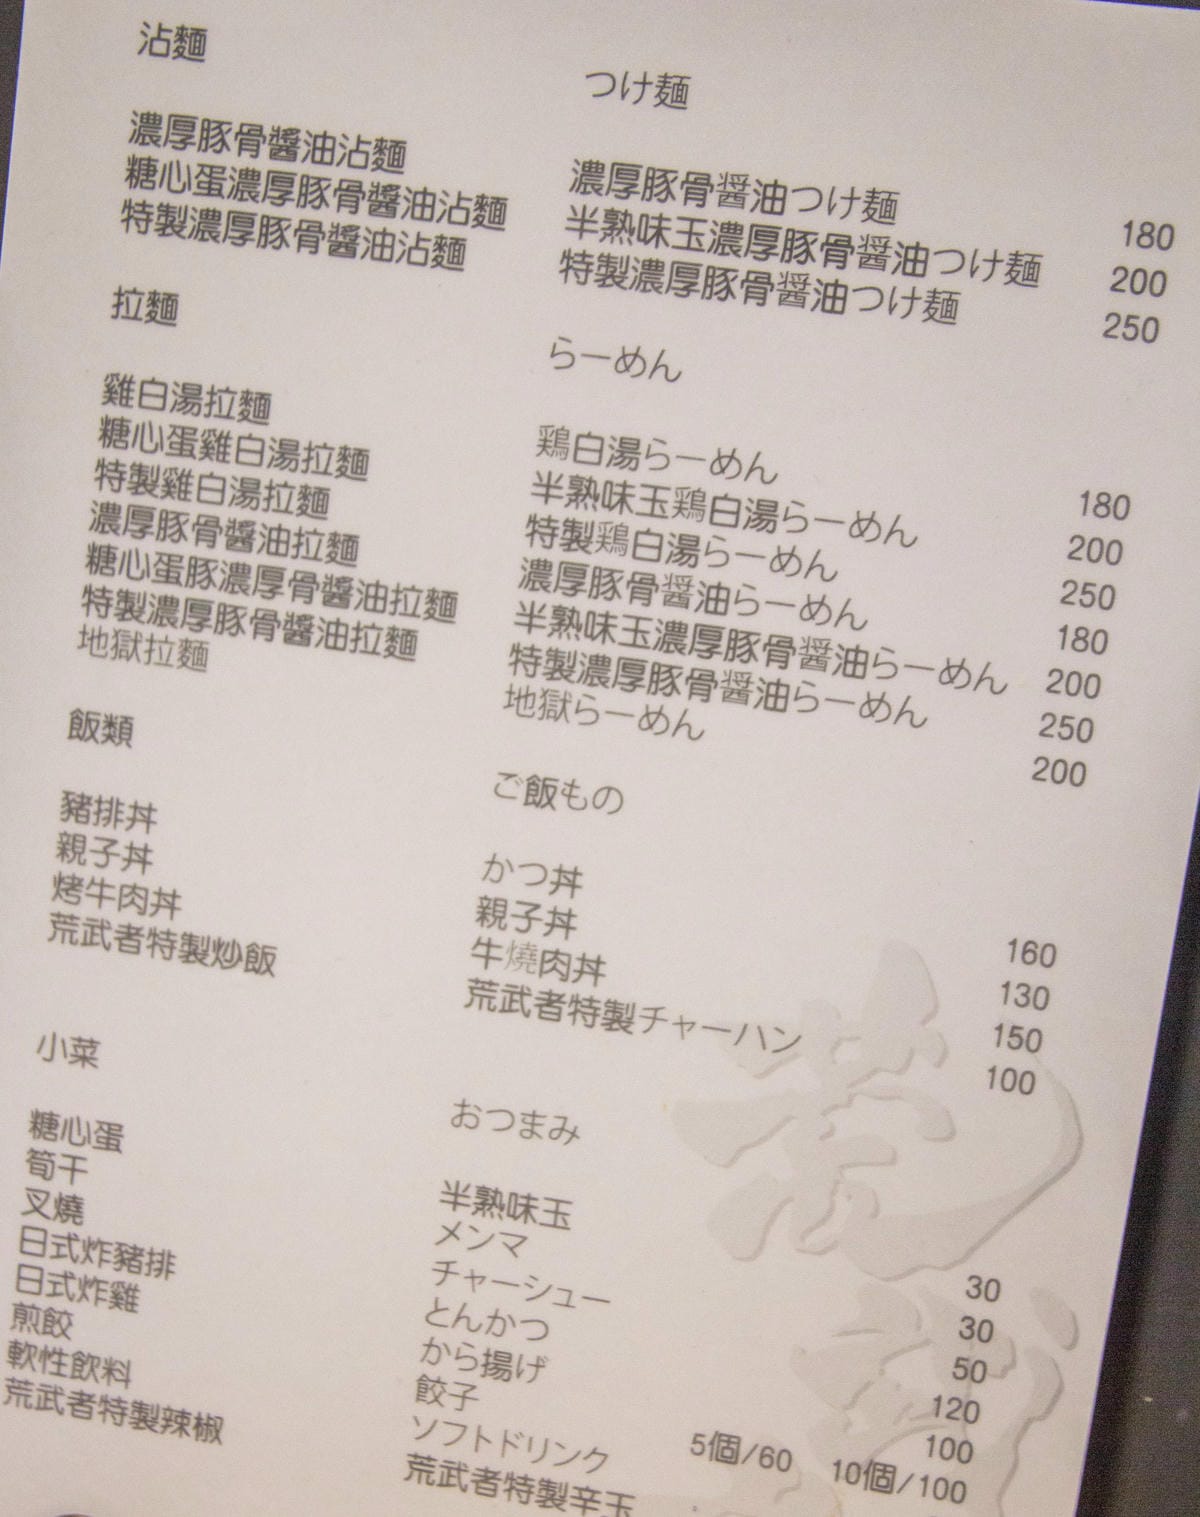 沾麵 つけ麺
濃厚豚骨醬油沾麵 濃厚豚骨醤油つけ麺 180
糖心蛋濃厚豚骨醬油沾麵 半熟味玉濃厚豚骨醤油つけ麺 200
特製濃厚豚骨醬油沾麵 特製濃厚豚骨醤油つけ麺 250
拉麵 らーめん
雞白湯拉麵 鶏白湯らーめん 180
糖心蛋雞白湯拉麵 半熟味玉鶏白湯らーめん 200
特製雞白湯拉麵 特製鶏白湯らーめん 250
濃厚豚骨醬油拉麵 濃厚豚骨醤油らーめん 180
糖心蛋豚濃厚骨醬油拉麵 半熟味玉濃厚豚骨醤油らーめん 200
特製濃厚豚骨醬油拉麵 特製濃厚豚骨醤油らーめん 250
地獄拉麵 地獄らーめん 200
飯類 ご飯もの
豬排丼 かつ丼 160
親子丼 親子丼 130
烤牛肉丼 牛燒肉丼 150
荒武者特製炒飯 荒武者特製チャーハン 100
小菜 おつまみ
糖心蛋 半熟味玉 30
筍干 メンマ 30
叉燒 チャーシュー 50
日式炸豬排 とんかつ 120
日式炸雞 から揚げ 100
煎餃 餃子 5個/60 10個/100
軟性飲料 ソフトドリンク
荒武者特製辣椒 荒武者特製辛玉